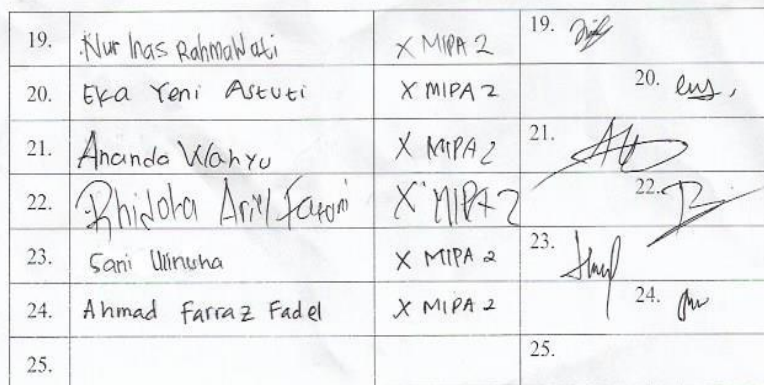 19. Nur Inas Rahmawati X MIPA 2 19.
20. Eka Yeni Astuti X MIPA 2 20.
21. Ananda Wahyu X MIPA 2 21.
22. X MIPA 2 22.
23. Sani Ulinuha X MIPA 2 23.
24. Ahmad Farraz Fadel X MIPA 2 24.
25. 25.